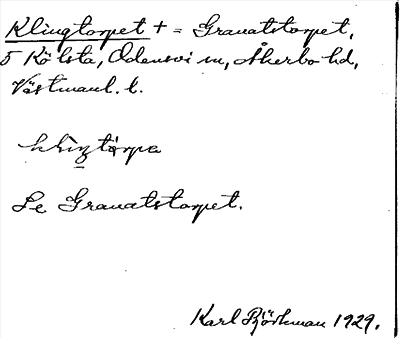 Klingtorpet + = Granatstorpet,
5 Kölsta, Odensvi sn, Åkerbo hd,
Västmanl. l.
klıŋtårpa
Se Granatstorpet.
Karl Björkman 1929.